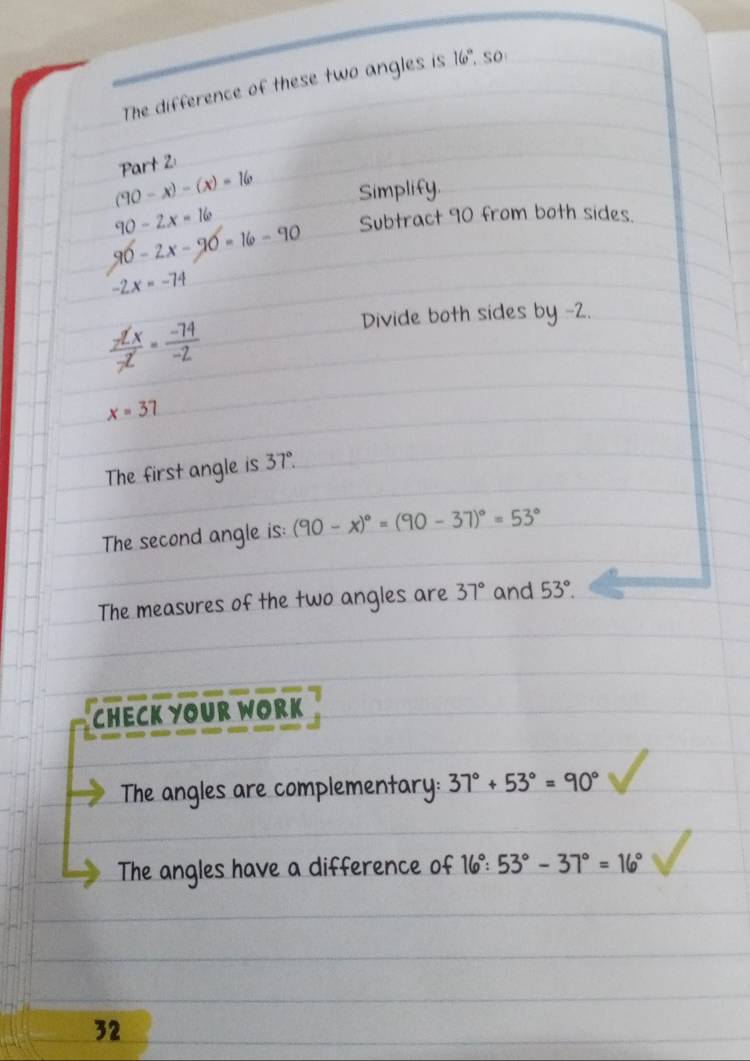 The difference of these two angles is 16°, so:
Part 2:
(90 - x) - (x) = 16
Simplify.
90 - 2x = 16
Subtract 90 from both sides.
90 - 2x - 90 = 16 - 90
-2x = -74
Divide both sides by -2.
-2x/-2 = -74/-2
x = 37
The first angle is 37°.
The second angle is: (90 - x)° = (90 - 37)° = 53°
The measures of the two angles are 37° and 53°.
CHECK YOUR WORK
The angles are complementary: 37° + 53° = 90°
The angles have a difference of 16°: 53° - 37° = 16°
32